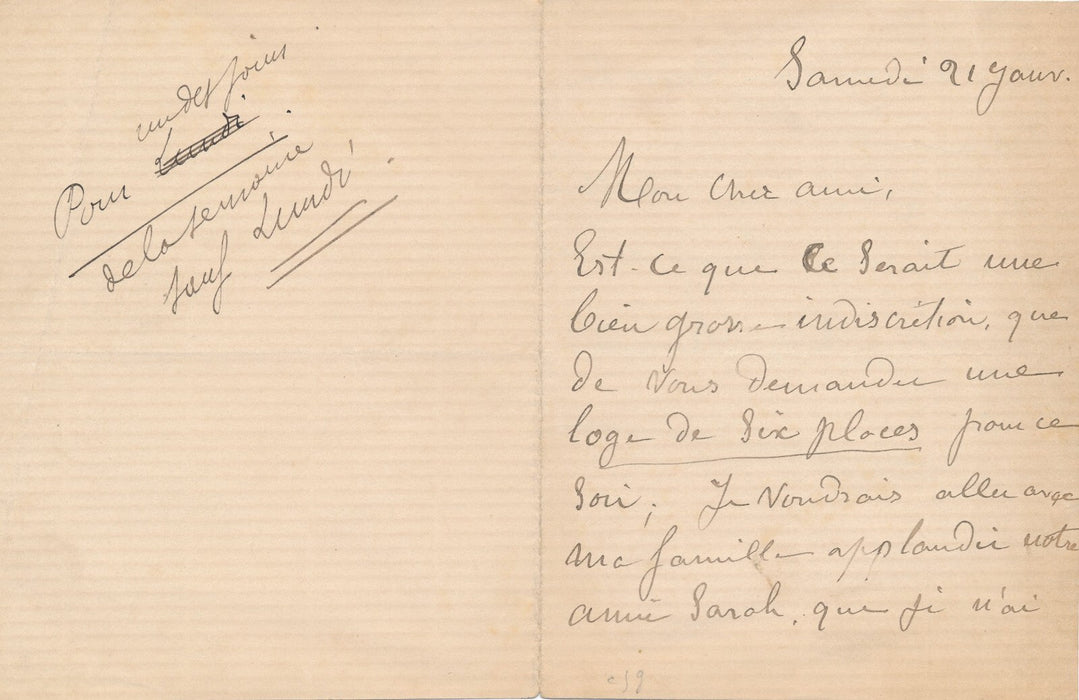 un des jours
Pour Lundi
de la semaine
sauf Lundi
Samedi 21 Janv.
Mon cher ami,
Est-ce que ce serait une
bien grosse indiscrétion, que
de vous demander une
loge de six places pour ce
soir; Je voudrais aller avec
ma famille applaudir notre
amie Sarah, que je n'ai